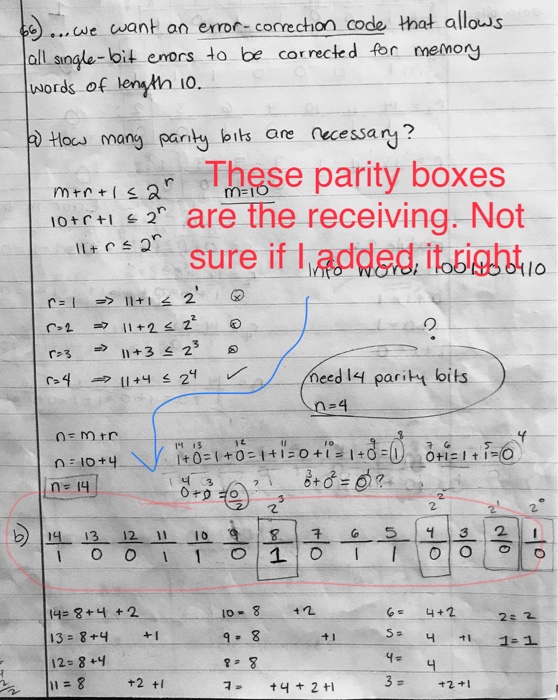 66) ...we want an error-correction code that allows
all single-bit errors to be corrected for memory
words of length 10.
a) How many parity bits are necessary?
These parity boxes
m+r+1 ≤ 2^r m=10
are the receiving. Not
10+r+1 ≤ 2^r
sure if I added it right
11+r ≤ 2^r
Info word: 1001100110
r=1 ⇒ 11+1 ≤ 2^1 ⊗
r=2 ⇒ 11+2 ≤ 2^2 ⊗
?
r=3 ⇒ 11+3 ≤ 2^3 ⊗
r=4 ⇒ 11+4 ≤ 2^4 ✓
need 14 parity bits
n=4
n=m+r
14 13 12 11 10 9 8 7 6 5 4
n=10+4
1+0=1+0=1+1=0+1=1+0=1 0+1=1+1=0
n=14
4 3 ? 1 3 2 1
0+0=0 0+0=0?
2
2^3 2^2 2^1 2^0
b) 14 13 12 11 10 9 8 7 6 5 4 3 2 1
1 0 0 1 1 0 1 0 1 1 0 0 0 0
14=8+4+2 10=8 +2 6= 4+2 2=2
13=8+4 +1 9=8 +1 5= 4 +1 1=1
12=8+4 8=8 4= 4
11=8 +2+1 7= +4+2+1 3= +2+1